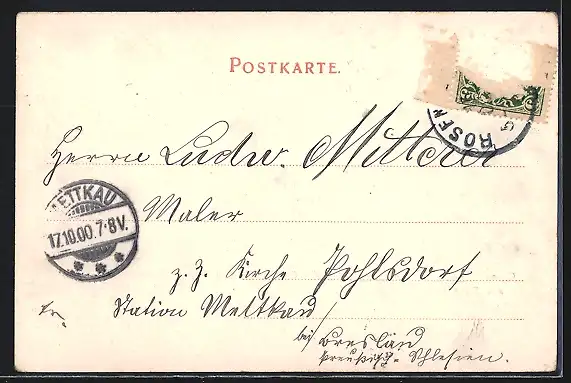 POSTKARTE.
ROSEN
Herrn Ludw. Mitterer
METTKAU
17.10.00.7-8V.
Maler
z. Z. Kirche Pohlsdorf
Station Mettkau
bei Breslau
preußisch-Schlesien.